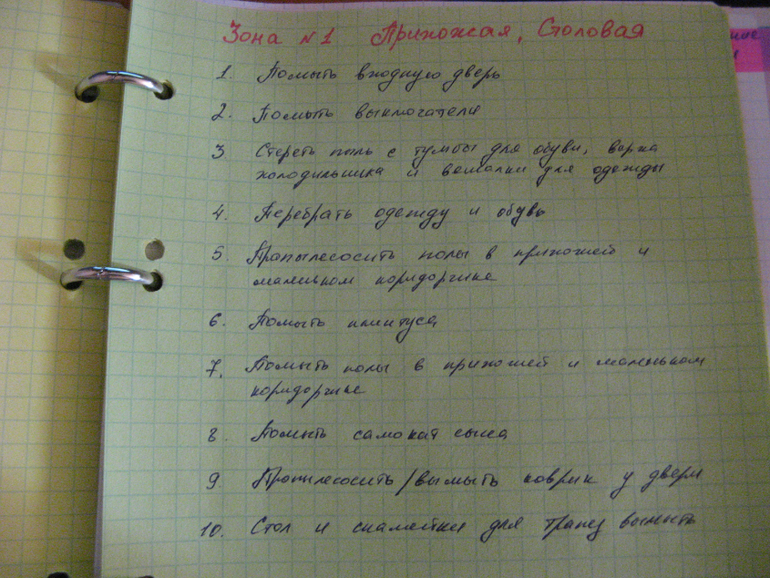 Зона №1 Прихожая, Столовая
1. Помыть входную дверь
2. Помыть выключатели
3 Стереть пыль с тумбы для обуви, верха
холодильника и вешалки для одежды
4. Перебрать одежду и обувь
5. Пропылесосить полы в прихожей и
маленьком коридорчике
6. Помыть плинтуса
7. Помыть полы в прихожей и маленьком
коридорчике
8. Помыть самокат сына
9. Пропылесосить/вымыть коврик у двери
10. Стол и скамейки для трапез вымыть